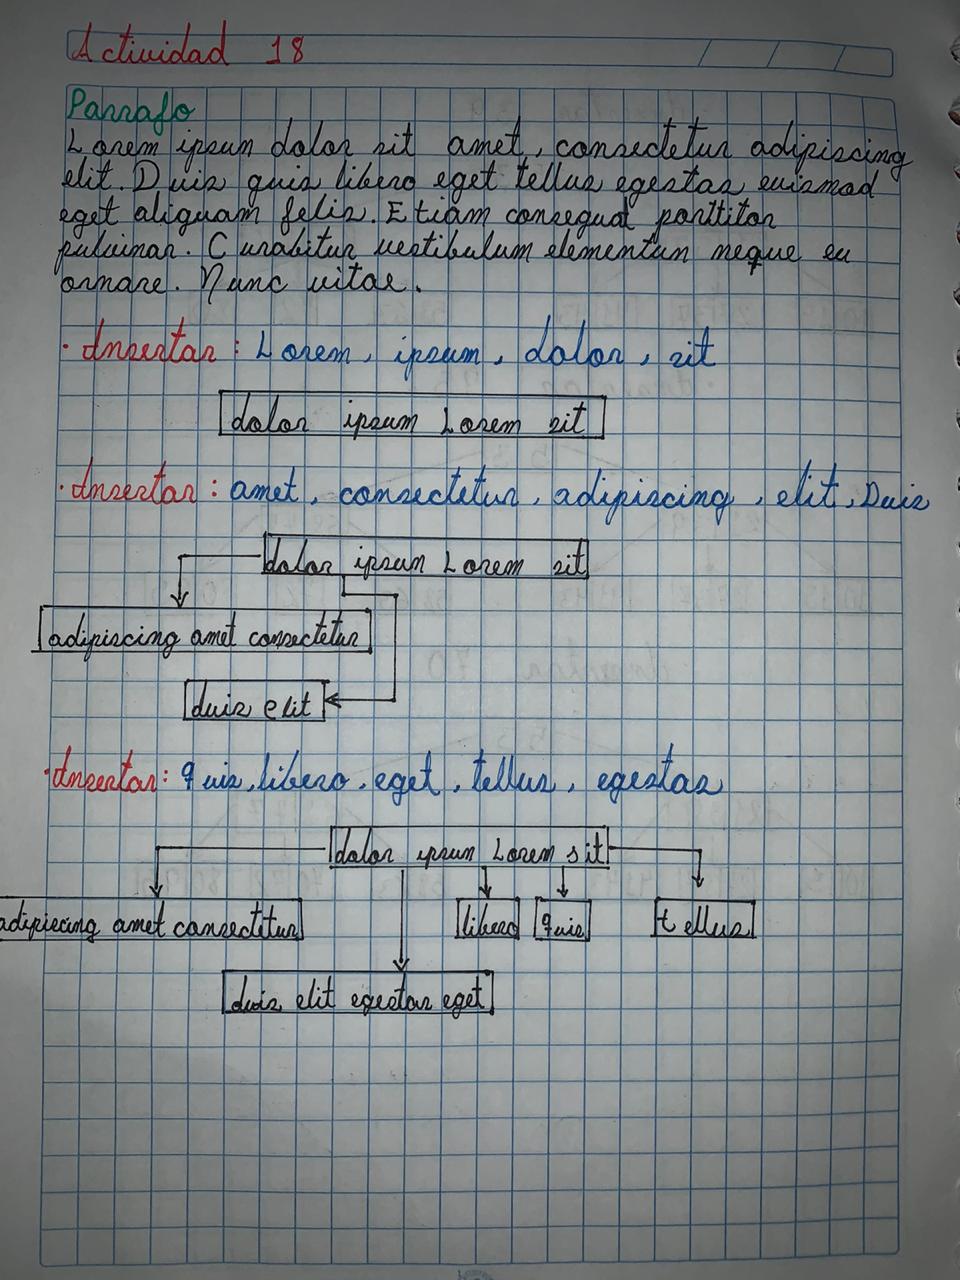 Actividad 18
Parrafo
Lorem ipsun dolor sit amet, consectetur adipiscing
elit. Duis quis libero eget tellus egestas euismod
eget aliquam felis. Etiam consequat porttitor
pulvinar. Curabitur vestibulum elementun neque eu
ornare. Nunc vitae.
· Insertar: Lorem, ipsum, dolor, sit
dolor ipsum Lorem sit
· Insertar: amet, consectetur, adipiscing, elit, Duis
dolor ipsum Lorem sit
adipiscing amet consectetur
duis elit
· Insertar: quis, libero, eget, tellus, egestas
dolor ipsum Lorem sit
adipiscing amet consectetur
libero quis tellus
duis elit egestas eget